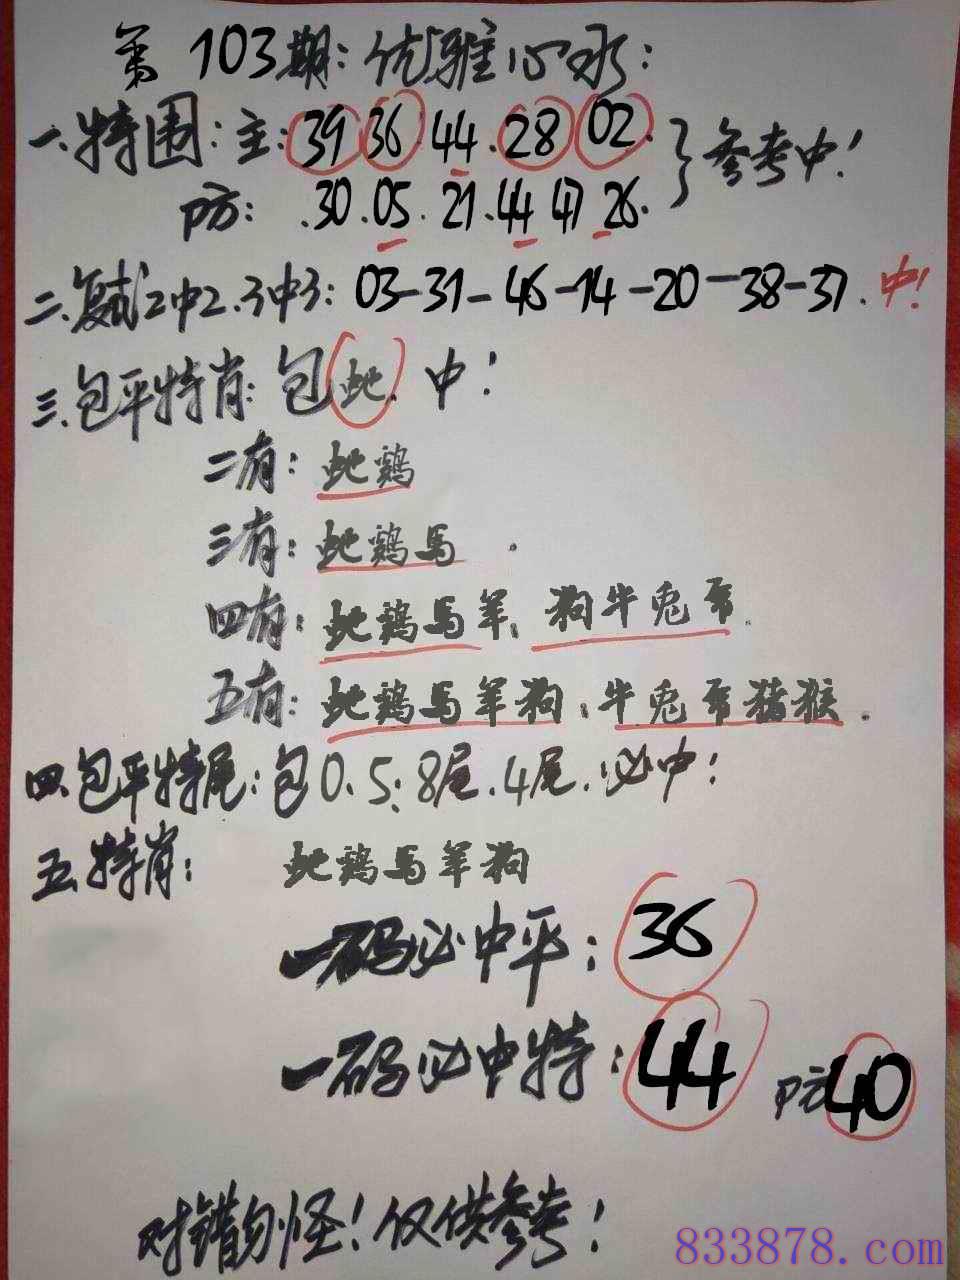 第103期:优雅心水:
一.特围:主:39 36 44.28 02.
防:.30.05.21.44 47 26.
参考中!
二.复式2中2.3中3:03-31-46-14-20-38-37.中!
三.包平特肖:包蛇.中!
二有:蛇鸡
三有:蛇鸡马.
四有:蛇鸡马羊;狗牛兔
五有:蛇鸡马羊狗;牛兔 猪猴.
四.包平特尾:包0.5;8尾.4尾.必中!
五.特肖:蛇鸡马羊狗
一码必中平:36
一码必中特:44 防40
对错勿怪!仅供参考!
833878.com